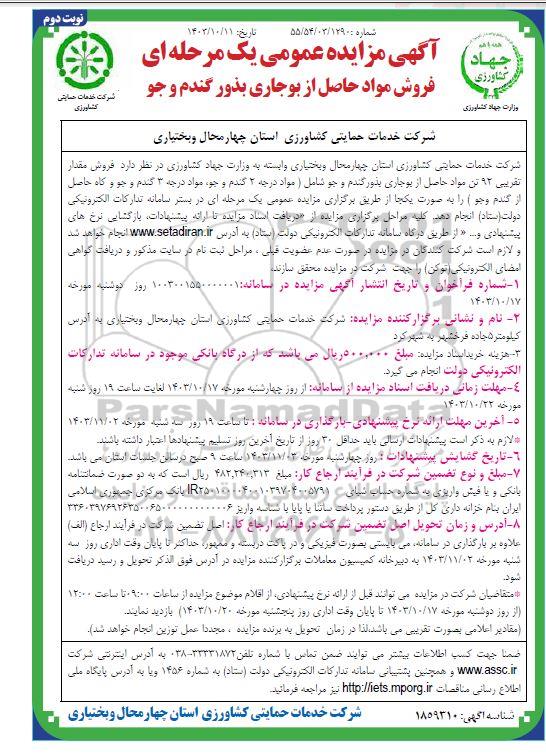 نوبت دوم
شماره: ۵۵/۵۴/۰۳/۱۲۹۰
تاریخ: ۱۴۰۳/۱۰/۱۱
آگهی مزایده عمومی یک مرحله ای
فروش مواد حاصل از بوجاری بذور گندم و جو
همه با هم
جهاد
کشاورزی
وزارت جهاد کشاورزی
شرکت خدمات حمایتی
کشاورزی
شرکت خدمات حمایتی کشاورزی استان چهارمحال وبختیاری
شرکت خدمات حمایتی کشاورزی استان چهارمحال وبختیاری وابسته به وزارت جهاد کشاورزی در نظر دارد فروش مقدار
تقریبی ۹۲ تن مواد حاصل از بوجاری بذورگندم و جو شامل ( مواد درجه ۲ گندم و جو، مواد درجه ۳ گندم و جو و کاه حاصل
از گندم وجو ) را به صورت یکجا از طریق برگزاری مزایده عمومی یک مرحله ای در بستر سامانه تدارکات الکترونیکی
دولت(ستاد) انجام دهد. کلیه مراحل برگزاری مزایده از «دریافت اسناد مزایده تا ارائه پیشنهادات، بازگشایی نرخ های
پیشنهادی و... » از طریق درگاه سامانه تدارکات الکترونیکی دولت (ستاد) به آدرس www.setadiran.ir انجام خواهد شد
و لازم است شرکت کنندگان در مزایده در صورت عدم عضویت قبلی ، مراحل ثبت نام در سایت مذکور و دریافت گواهی
امضای الکترونیکی(توکن) را جهت شرکت در مزایده محقق سازند.
۱-شماره فراخوان و تاریخ انتشار آگهی مزایده در سامانه: روز دوشنبه مورخه
۱۴۰۳/۱۰/۱۷
۲- نام و نشانی برگزارکننده مزایده: شرکت خدمات حمایتی کشاورزی استان چهارمحال وبختیاری به آدرس
کیلومتر۵جاده فرخشهر به شهرکرد
۳-هزینه خریداسناد مزایده: مبلغ ۵۰۰,۰۰۰ریال می باشد که از درگاه بانکی موجود در سامانه تدارکات
الکترونیکی دولت انجام می گیرد.
۴-مهلت زمانی دریافت اسناد مزایده از سامانه: از روز چهارشنبه مورخه ۱۴۰۳/۱۰/۱۷ لغایت ساعت ۱۹ روز شنبه
مورخه ۱۴۰۳/۱۰/۲۲
۵- آخرین مهلت ارائه نرخ پیشنهادی-بارگذاری در سامانه : تا ساعت ۱۹ روز سه شنبه مورخه ۱۴۰۳/۱۱/۰۲
*لازم به ذکر است پیشنهادات ارسالی باید حداقل ۳۰ روز از تاریخ آخرین روز تسلیم پیشنهادها اعتبار داشته باشند.
۶-تاریخ گشایش پیشنهادات : روز چهارشنبه مورخه ۱۴۰۳/۱۱/۰۳ ساعت ۹ صبح درسالن جلسات استان می باشد.
۷-مبلغ و نوع تضمین شرکت در فرآیند ارجاع کار: مبلغ ۴۸۲,۲۴۰,۳۱۳ ریال است که به دو صورت ضمانتنامه
بانکی و یا فیش واریزی به شماره حساب شبای بانک مرکزی جمهوری اسلامی
ایران بنام خزانه داری کل از طریق دستور پرداخت ساتنا یا پایا با شناسه واریز
۸-آدرس و زمان تحویل اصل تضمین شرکت در فرآیند ارجاع کار: اصل تضمین شرکت در فرآیند ارجاع (الف)
علاوه بر بارگذاری در سامانه، می بایستی بصورت فیزیکی و در پاکت دربسته و ممهور، حداکثر تا پایان وقت اداری روز سه
شنبه مورخه ۱۴۰۳/۱۱/۰۲ به دبیرخانه کمیسیون معاملات برگزارکننده مزایده در آدرس فوق الذکر تحویل و رسید دریافت
شود.
*متقاضیان شرکت در مزایده می توانند قبل از ارائه نرخ پیشنهادی، از اقلام موضوع مزایده از ساعات ۰۹:۰۰تا ساعت ۱۲:۰۰
(از روز دوشنبه مورخه ۱۴۰۳/۱۰/۱۷ تا پایان وقت اداری روز پنجشنبه مورخه ۱۴۰۳/۱۰/۲۰) بازدید نمایند.
(مقادیر اعلامی بصورت تقریبی می باشد،لذا در زمان تحویل به برنده مزایده ، مجددا عمل توزین انجام خواهد شد).
ضمنا جهت کسب اطلاعات بیشتر می توایند ضمن تماس با شماره تلفن۳۳۳۳۱۸۷۲-۰۳۸ به آدرس اینترنتی شرکت
www.assc.ir و همچنین پشتیبانی سامانه تدارکات الکترونیکی دولت (ستاد) به شماره ۱۴۵۶ ویا به آدرس پایگاه ملی
اطلاع رسانی مناقصات http://iets.mporg.ir نیز مراجعه فرمائید.
شناسه آگهی: ۱۸۵۹۳۱۰
شرکت خدمات حمایتی کشاورزی استان چهارمحال وبختیاری